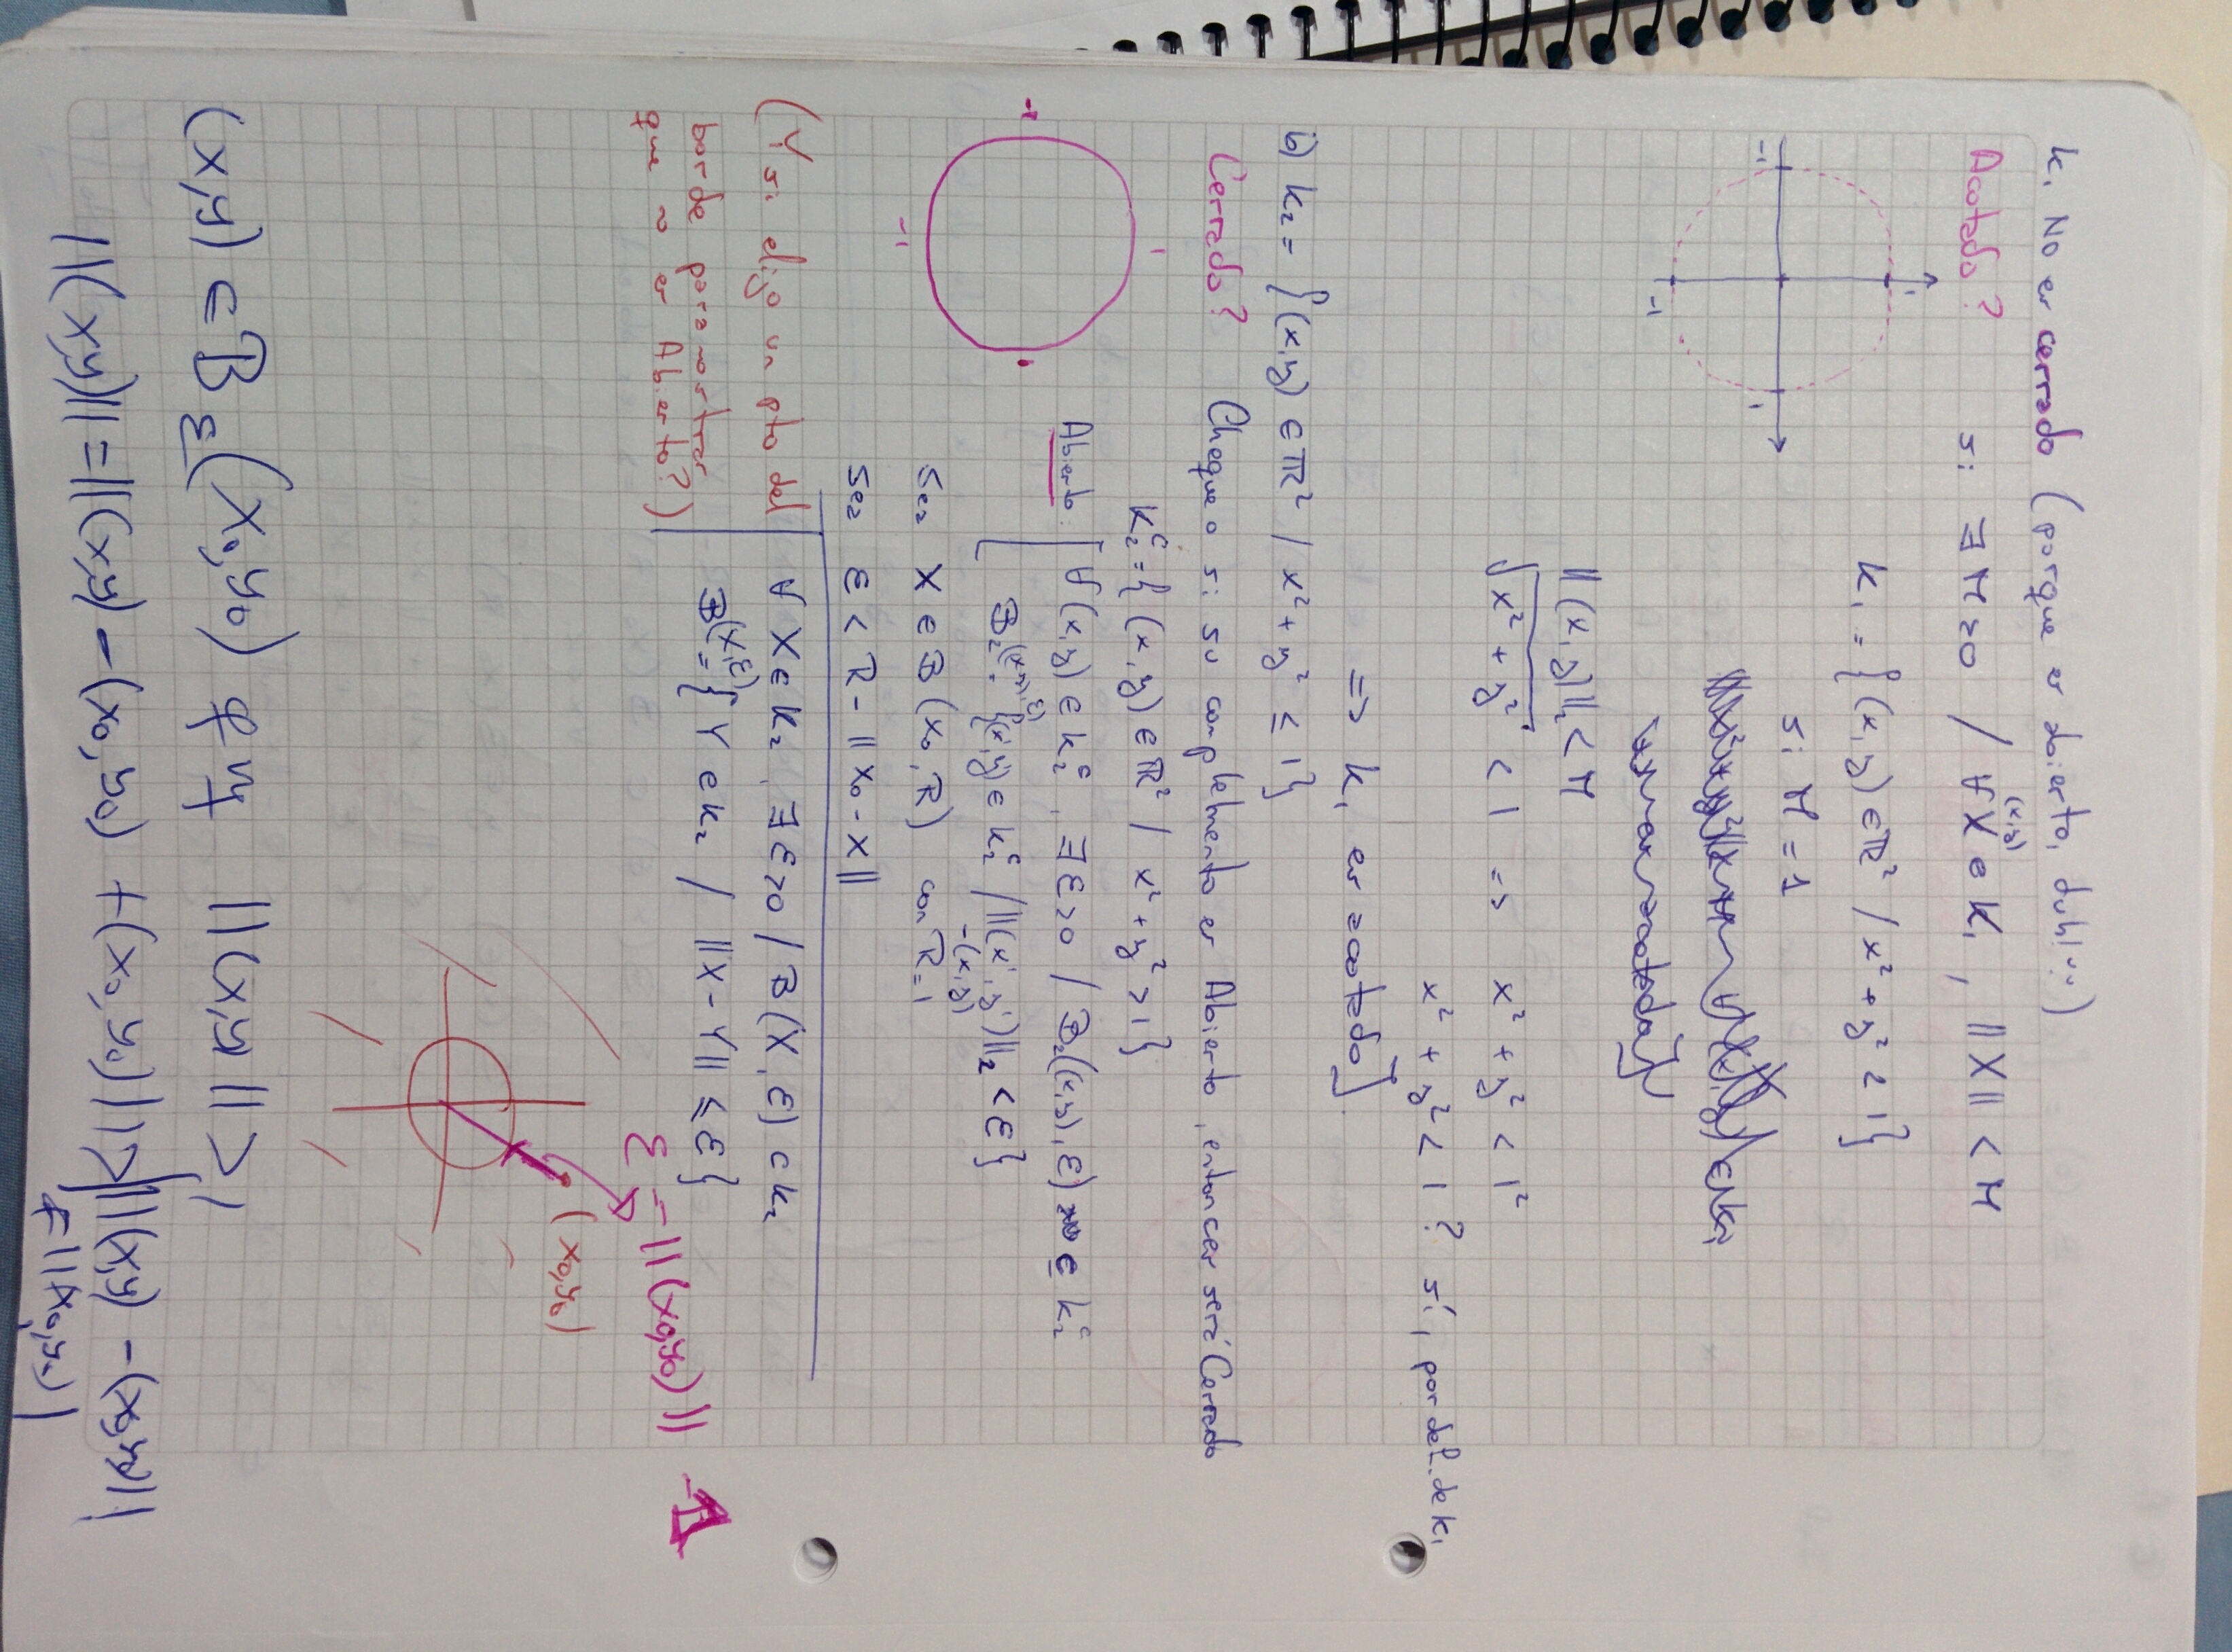 K₁ NO es cerrado (porque es abierto, duh! ":)
Acotado? si ∃ M>0 / ∀ X ∈ K₁ , ||X|| < M
(x,y)
1
-1
1
-1
K₁ = {(x,y) ∈ ℝ² / x² + y² < 1}
si M = 1
acotado]
||(x,y)||₂ < M
√(x² + y²) < 1 => x² + y² < 1²
x² + y² < 1 ? sí, por def. de K₁
=> K₁ es acotado].
b) K₂ = {(x,y) ∈ ℝ² / x² + y² ≤ 1}
Cerrado? Chequeo si su complemento es Abierto, entonces será Cerrado
K₂ᶜ = {(x,y) ∈ ℝ² / x² + y² > 1}
1
-1
-1
Abierto: [∀(x,y) ∈ K₂ᶜ, ∃ ε>0 / B₂((x,y), ε) ⊆ K₂ᶜ
B₂((x,y),ε) = {(x',y') ∈ K₂ᶜ / ||(x',y') -(x,y)||₂ < ε}
Sea X ∈ B(x₀, R) con R=1
Sea ε < R - ||x₀ - X||
(Y si elijo un pto del
borde para mostrar
que no es Abierto?)
∀ X ∈ K₂, ∃ ε>0 / B(X, ε) ⊂ K₂
B(X,ε) = { Y ∈ K₂ / ||X-Y|| ≤ ε}
ε = ||(x₀,y₀)|| -1
(x₀,y₀)
(x,y) ∈ B_ε(x₀,y₀) qvq ||(x,y)|| > 1
||(x,y)|| = ||(x,y) - (x₀,y₀) + (x₀,y₀)|| > | ||(x,y) - (x₀,y₀)||
- ||(x₀,y₀)|